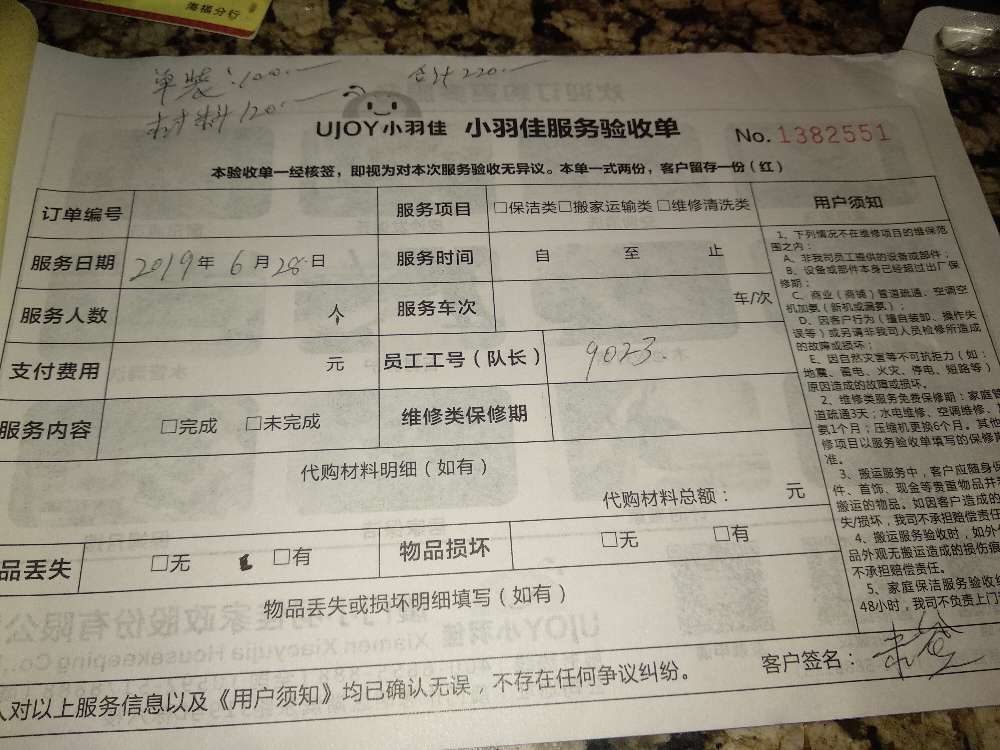 海福分行
单装:100.— 合计220.—
材料120.—
UJOY小羽佳 小羽佳服务验收单 No.1382551
本验收单一经核签，即视为对本次服务验收无异议。本单一式两份，客户留存一份（红）
订单编号 服务项目 □保洁类□搬家运输类 □维修清洗类
服务日期 2019年 6月28日 服务时间 自 至 止
服务人数 人 服务车次 车/次
支付费用 元 员工工号（队长） 9023.
服务内容 □完成 □未完成 维修类保修期
代购材料明细（如有）
代购材料总额： 元
品丢失 □无 □有 物品损坏 □无 □有
物品丢失或损坏明细填写（如有）
人对以上服务信息以及《用户须知》均已确认无误，不存在任何争议纠纷。 客户签名：
用户须知
1、下列情况不在维修项目的维保范
围之内：
A、非我司员工提供的设备或部件；
B、设备或部件本身已经超过出厂保
修期；
C、商业（商铺）管道疏通、空调空
机加氨（新机或漏氨）；
D、因客户行为（擅自装卸、操作失
误等）或另请非我司人员检修所造成
的故障或损坏；
E、因自然灾害等不可抗拒力（如：
地震、雷电、火灾、停电、短路等）
原因造成的故障或损坏。
2、维修类服务免费保修期：家庭管
道疏通3天；水电维修、空调维修、
氨1个月；压缩机更换6个月。其他
修项目以服务验收单填写的保修期
准。
3、搬运服务中，客户应随身保
件、首饰、现金等贵重物品并
搬运的物品。如因客户造成的
失/损坏，我司不承担赔偿责任
4、搬运服务验收时，如外
品外观无搬运造成的损伤痕
不承担赔偿责任。
5、家庭保洁服务验收给
48小时，我司不负责上门